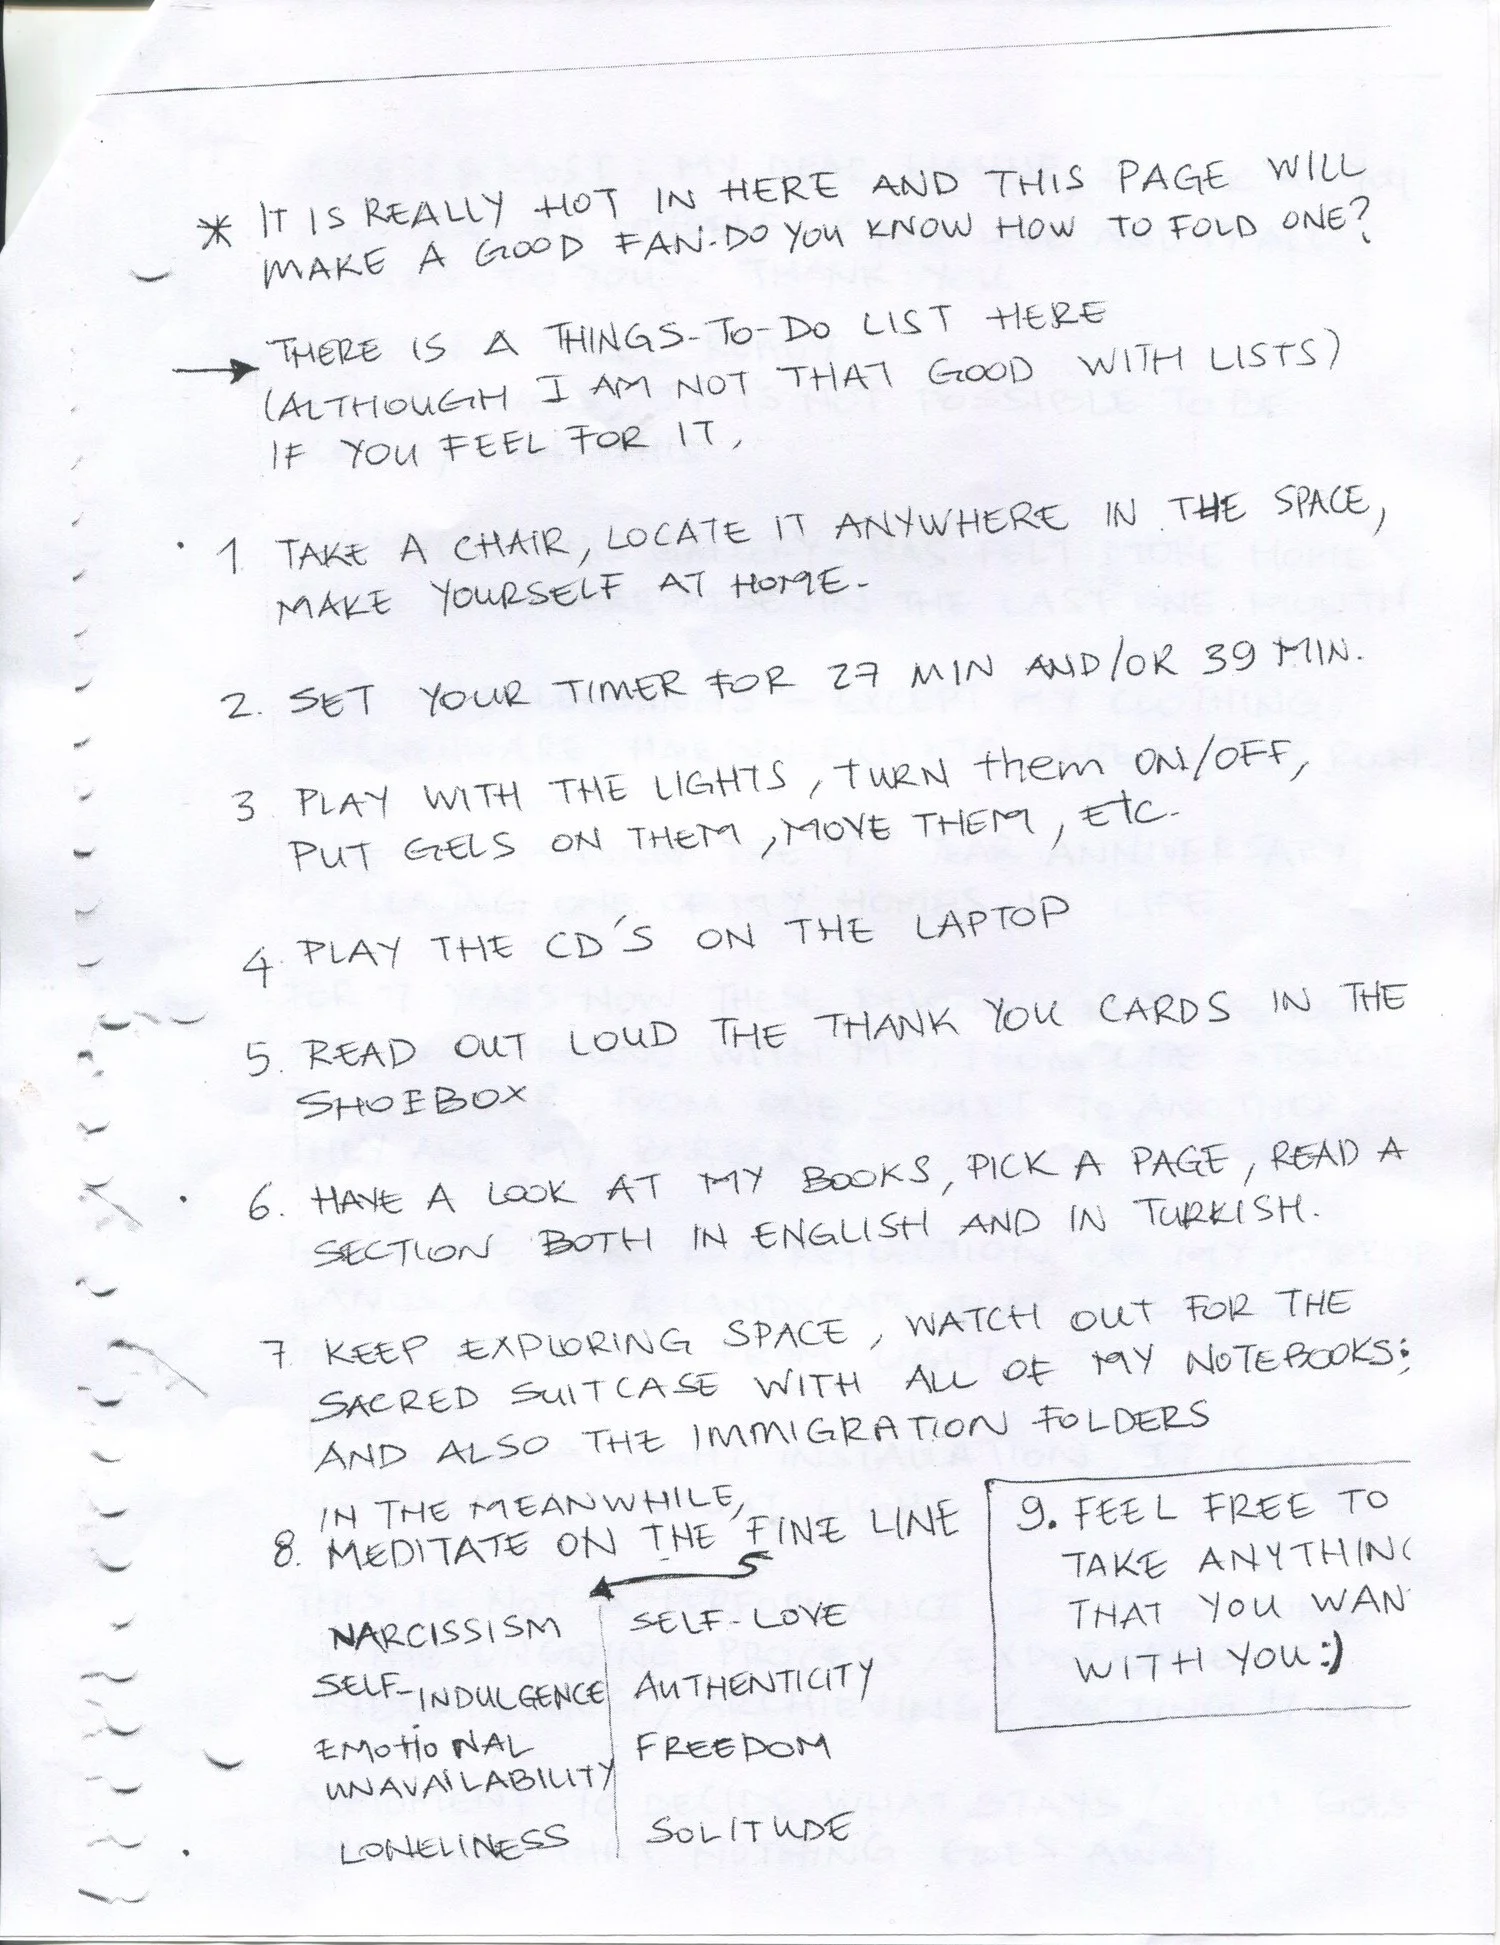 * IT IS REALLY HOT IN HERE AND THIS PAGE WILL
MAKE A GOOD FAN. DO YOU KNOW HOW TO FOLD ONE?
THERE IS A THINGS-TO-DO LIST HERE
(ALTHOUGH I AM NOT THAT GOOD WITH LISTS)
IF YOU FEEL FOR IT,
1. TAKE A CHAIR, LOCATE IT ANYWHERE IN THE SPACE,
MAKE YOURSELF AT HOME.
2. SET YOUR TIMER FOR 27 MIN AND/OR 39 MIN.
3 PLAY WITH THE LIGHTS, TURN them ON/OFF,
PUT GELS ON THEM, MOVE THEM, ETC.
4. PLAY THE CD'S ON THE LAPTOP
5. READ OUT LOUD THE THANK YOU CARDS IN THE
SHOEBOX
6. HAVE A LOOK AT MY BOOKS, PICK A PAGE, READ A
SECTION BOTH IN ENGLISH AND IN TURKISH.
7 KEEP EXPLORING SPACE, WATCH OUT FOR THE
SACRED SUITCASE WITH ALL OF MY NOTEBOOKS;
AND ALSO THE IMMIGRATION FOLDERS
IN THE MEANWHILE,
8. MEDITATE ON THE FINE LINE
NARCISSISM SELF-LOVE
SELF-INDULGENCE AUTHENTICITY
EMOTIONAL FREEDOM
UNAVAILABILITY
LONELINESS SOLITUDE
9. FEEL FREE TO
TAKE ANYTHIN
THAT YOU WAN
WITH YOU:)